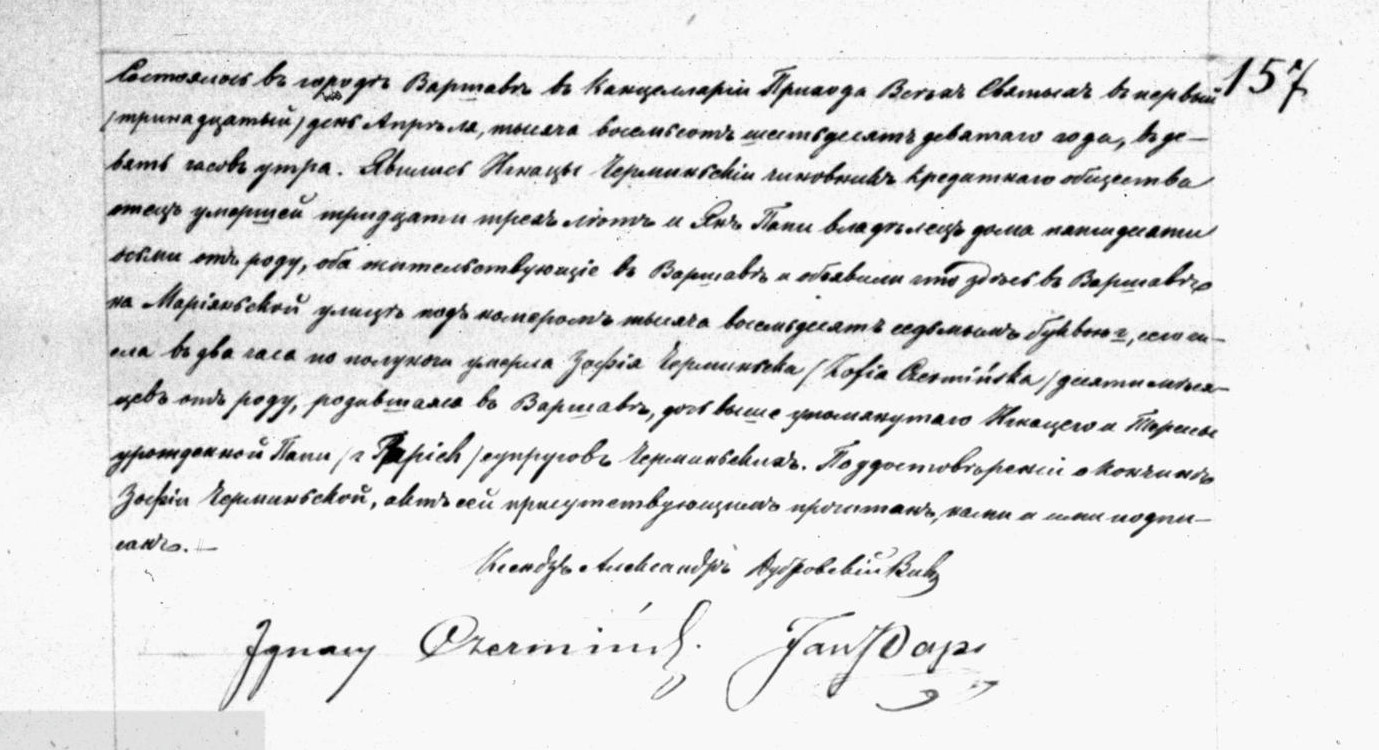 157
Состоялось въ городѣ Варшавѣ въ Канцелляріи Прихода Всѣхъ Святыхъ въ первый
/тринадцатый/ день Апрѣля, тысяча восемьсотъ шестьдесятъ девятаго года, въ де-
вять часовъ утра. Явились Игнацы Черминьскіи чиновникъ кредитнаго общества
отецъ умершей тридцати трехъ лѣтъ и Янъ Папи владѣлецъ дома пятидесяти
осьми отъ роду, оба жительствующіе въ Варшавѣ и объявили что здѣсь въ Варшавѣ
на Маріяньской улицѣ подъ номеромъ тысяча восемьдесятъ седьмымъ буквою г, сего чи-
сла въ два часа по полуночи умерла Зофія Черминьска /Zofia Czermińska/ десяти мѣся-
цевъ отъ роду, родившаяся въ Варшавѣ, дочь выше упомянутаго Игнацего и Терессы
урожденной Папи /z Papich/ супруговъ Черминьскихъ. По удостовѣреніи о кончинѣ
Зофіи Черминьской, актъ сей присутствующимъ прочитанъ, нами и ими подпи-
санъ. —
Ксендзъ Александръ Дубровскій Вик
Ignacy Czermiński. Jan Papi